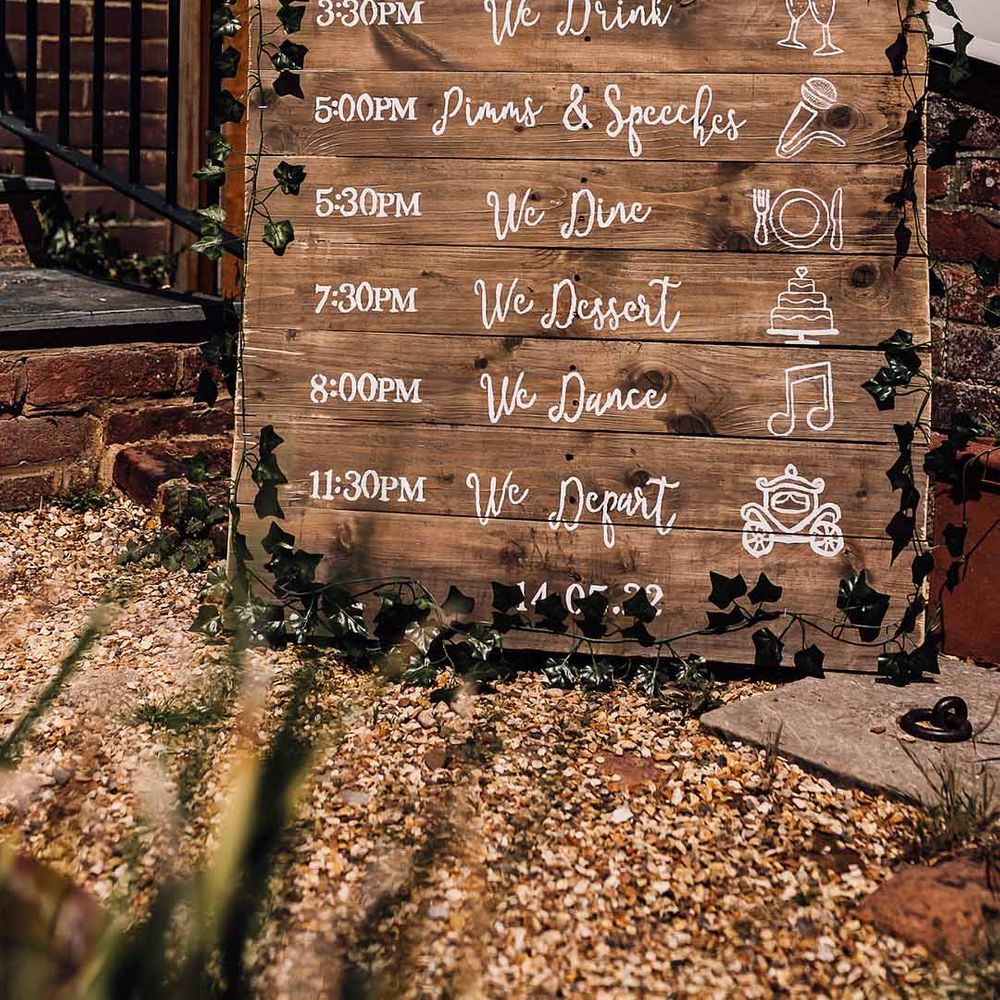 3:30PM We Drink
5:00PM Pimms & Speeches
5:30PM We Dine
7:30PM We Dessert
8:00PM We Dance
11:30PM We Depart
14.05.22